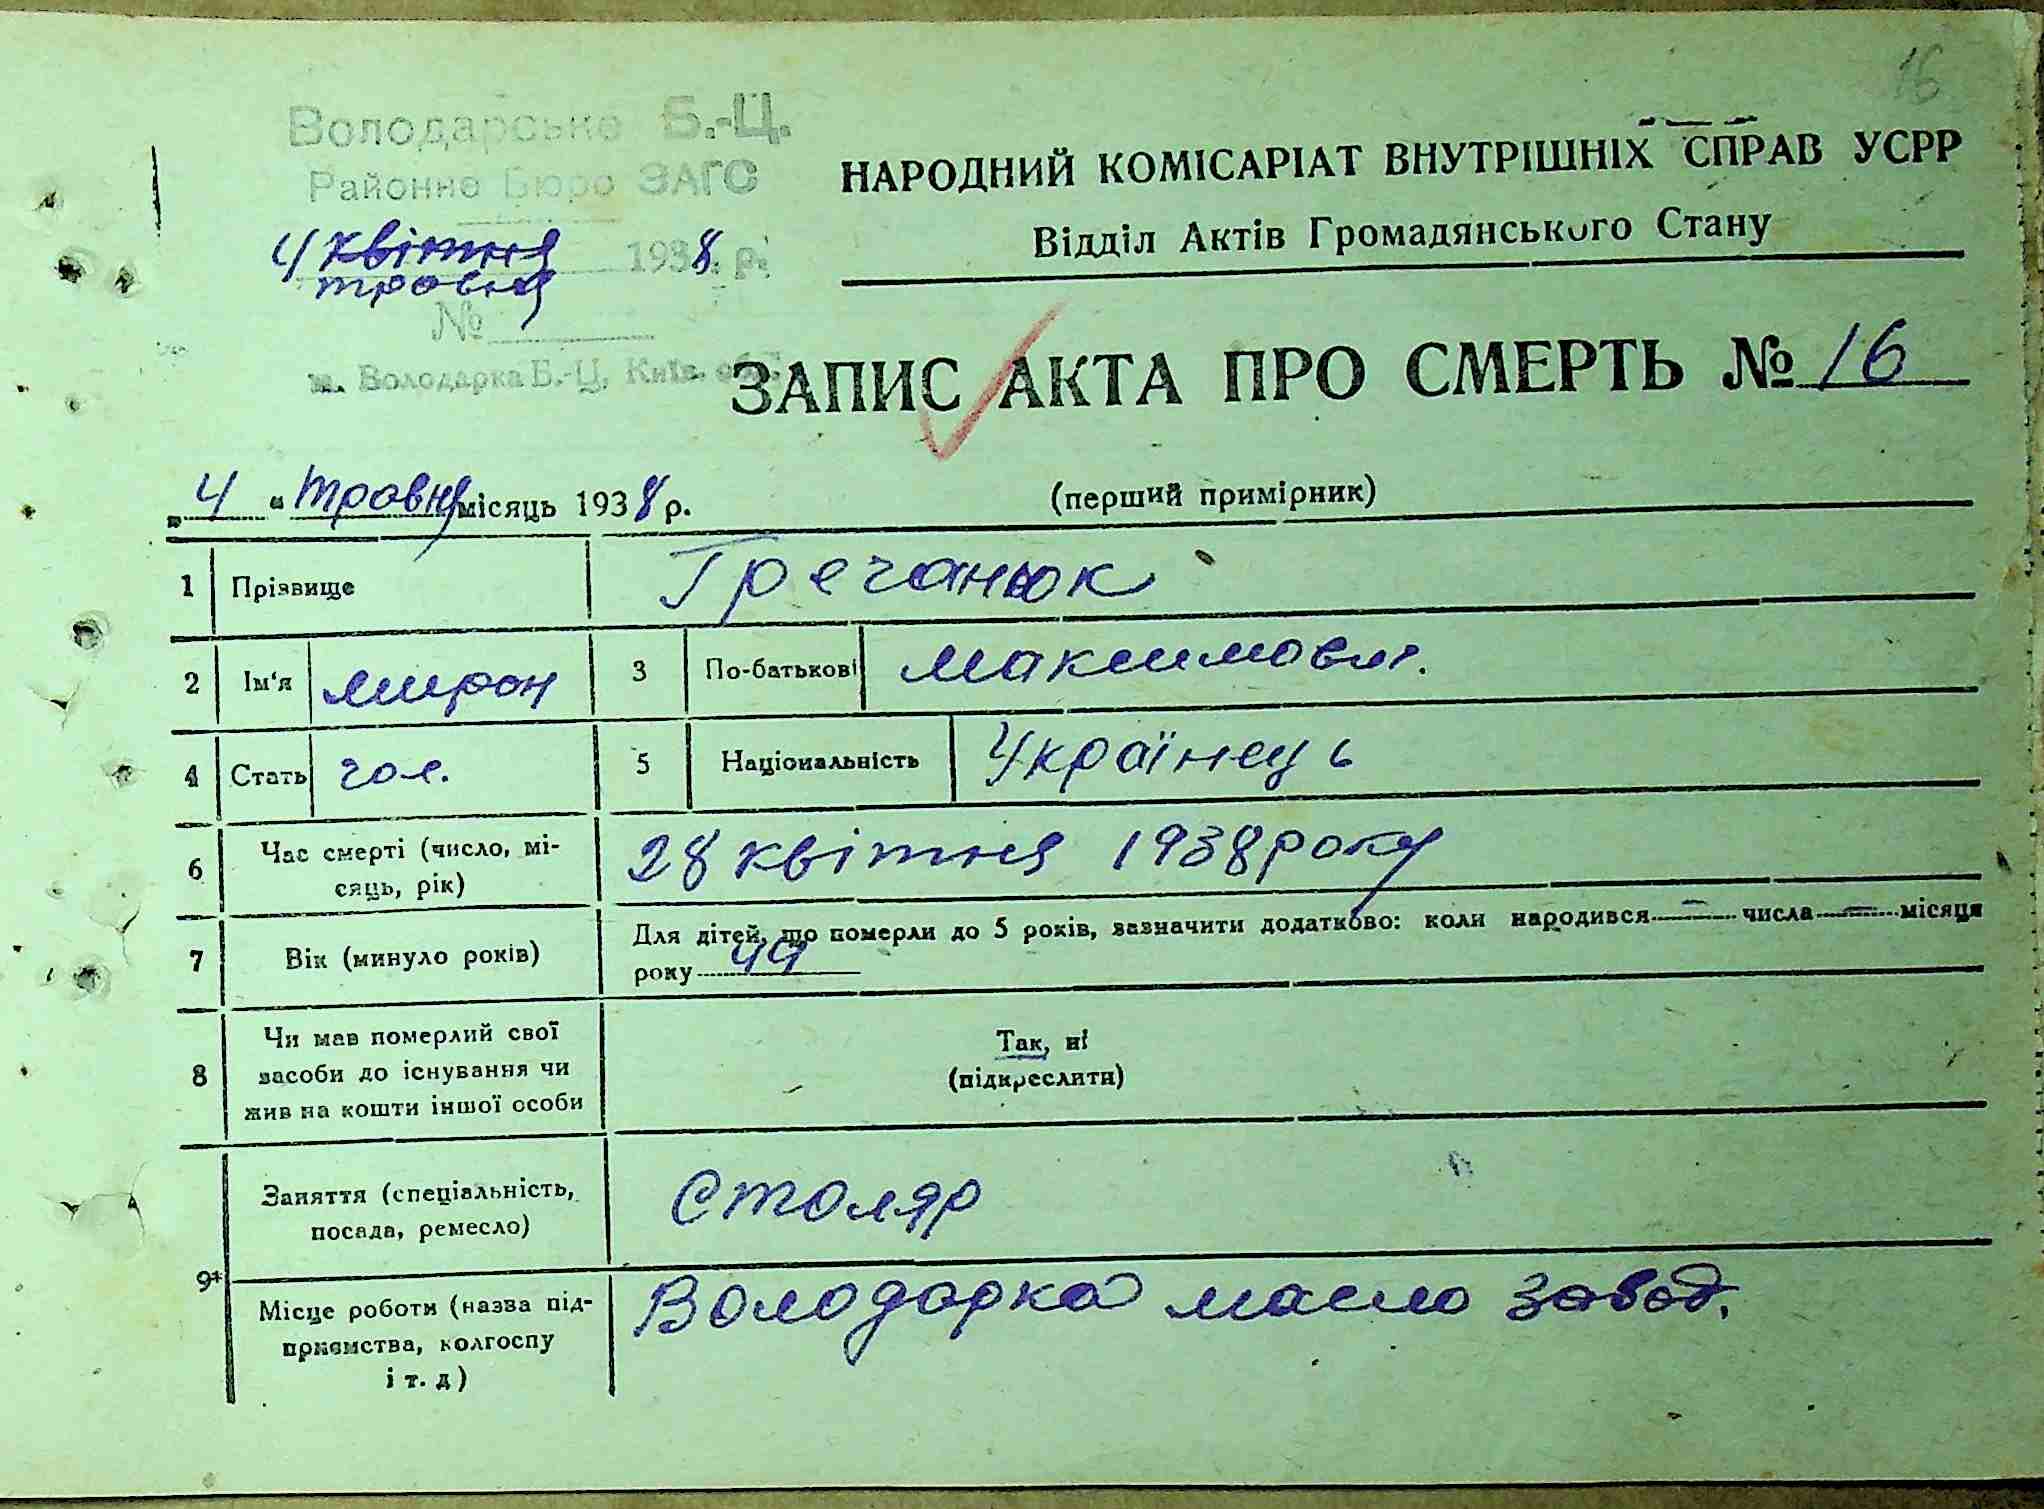 16
Володарське Б.-Ц.
Районне Бюро ЗАГС
4 квітня 1938 р.
травня
№
м. Володарка Б.-Ц, Київ. обл.
НАРОДНИЙ КОМІСАРІАТ ВНУТРІШНІХ СПРАВ УСРР
Відділ Актів Громадянського Стану
ЗАПИС АКТА ПРО СМЕРТЬ № 16
„4" травня місяць 1938 р.
(перший примірник)
1 Прізвище Гречанюк
2 Ім'я Мирон 3 По-батькові Максимович.
4 Стать чол. 5 Національність Українець
6 Час смерті (число, мі-
сяць, рік) 28 квітня 1938 року
7 Вік (минуло років) Для дітей, що померли до 5 років, зазначити додатково: коли народився — числа — місяця
року 49
8 Чи мав померлий свої
засоби до існування чи
жив на кошти іншої особи
Так, ні
(підкреслити)
9* Заняття (спеціальність,
посада, ремесло) Столяр
Місце роботи (назва під-
приємства, колгоспу
і т. д) Володарка масло завод.